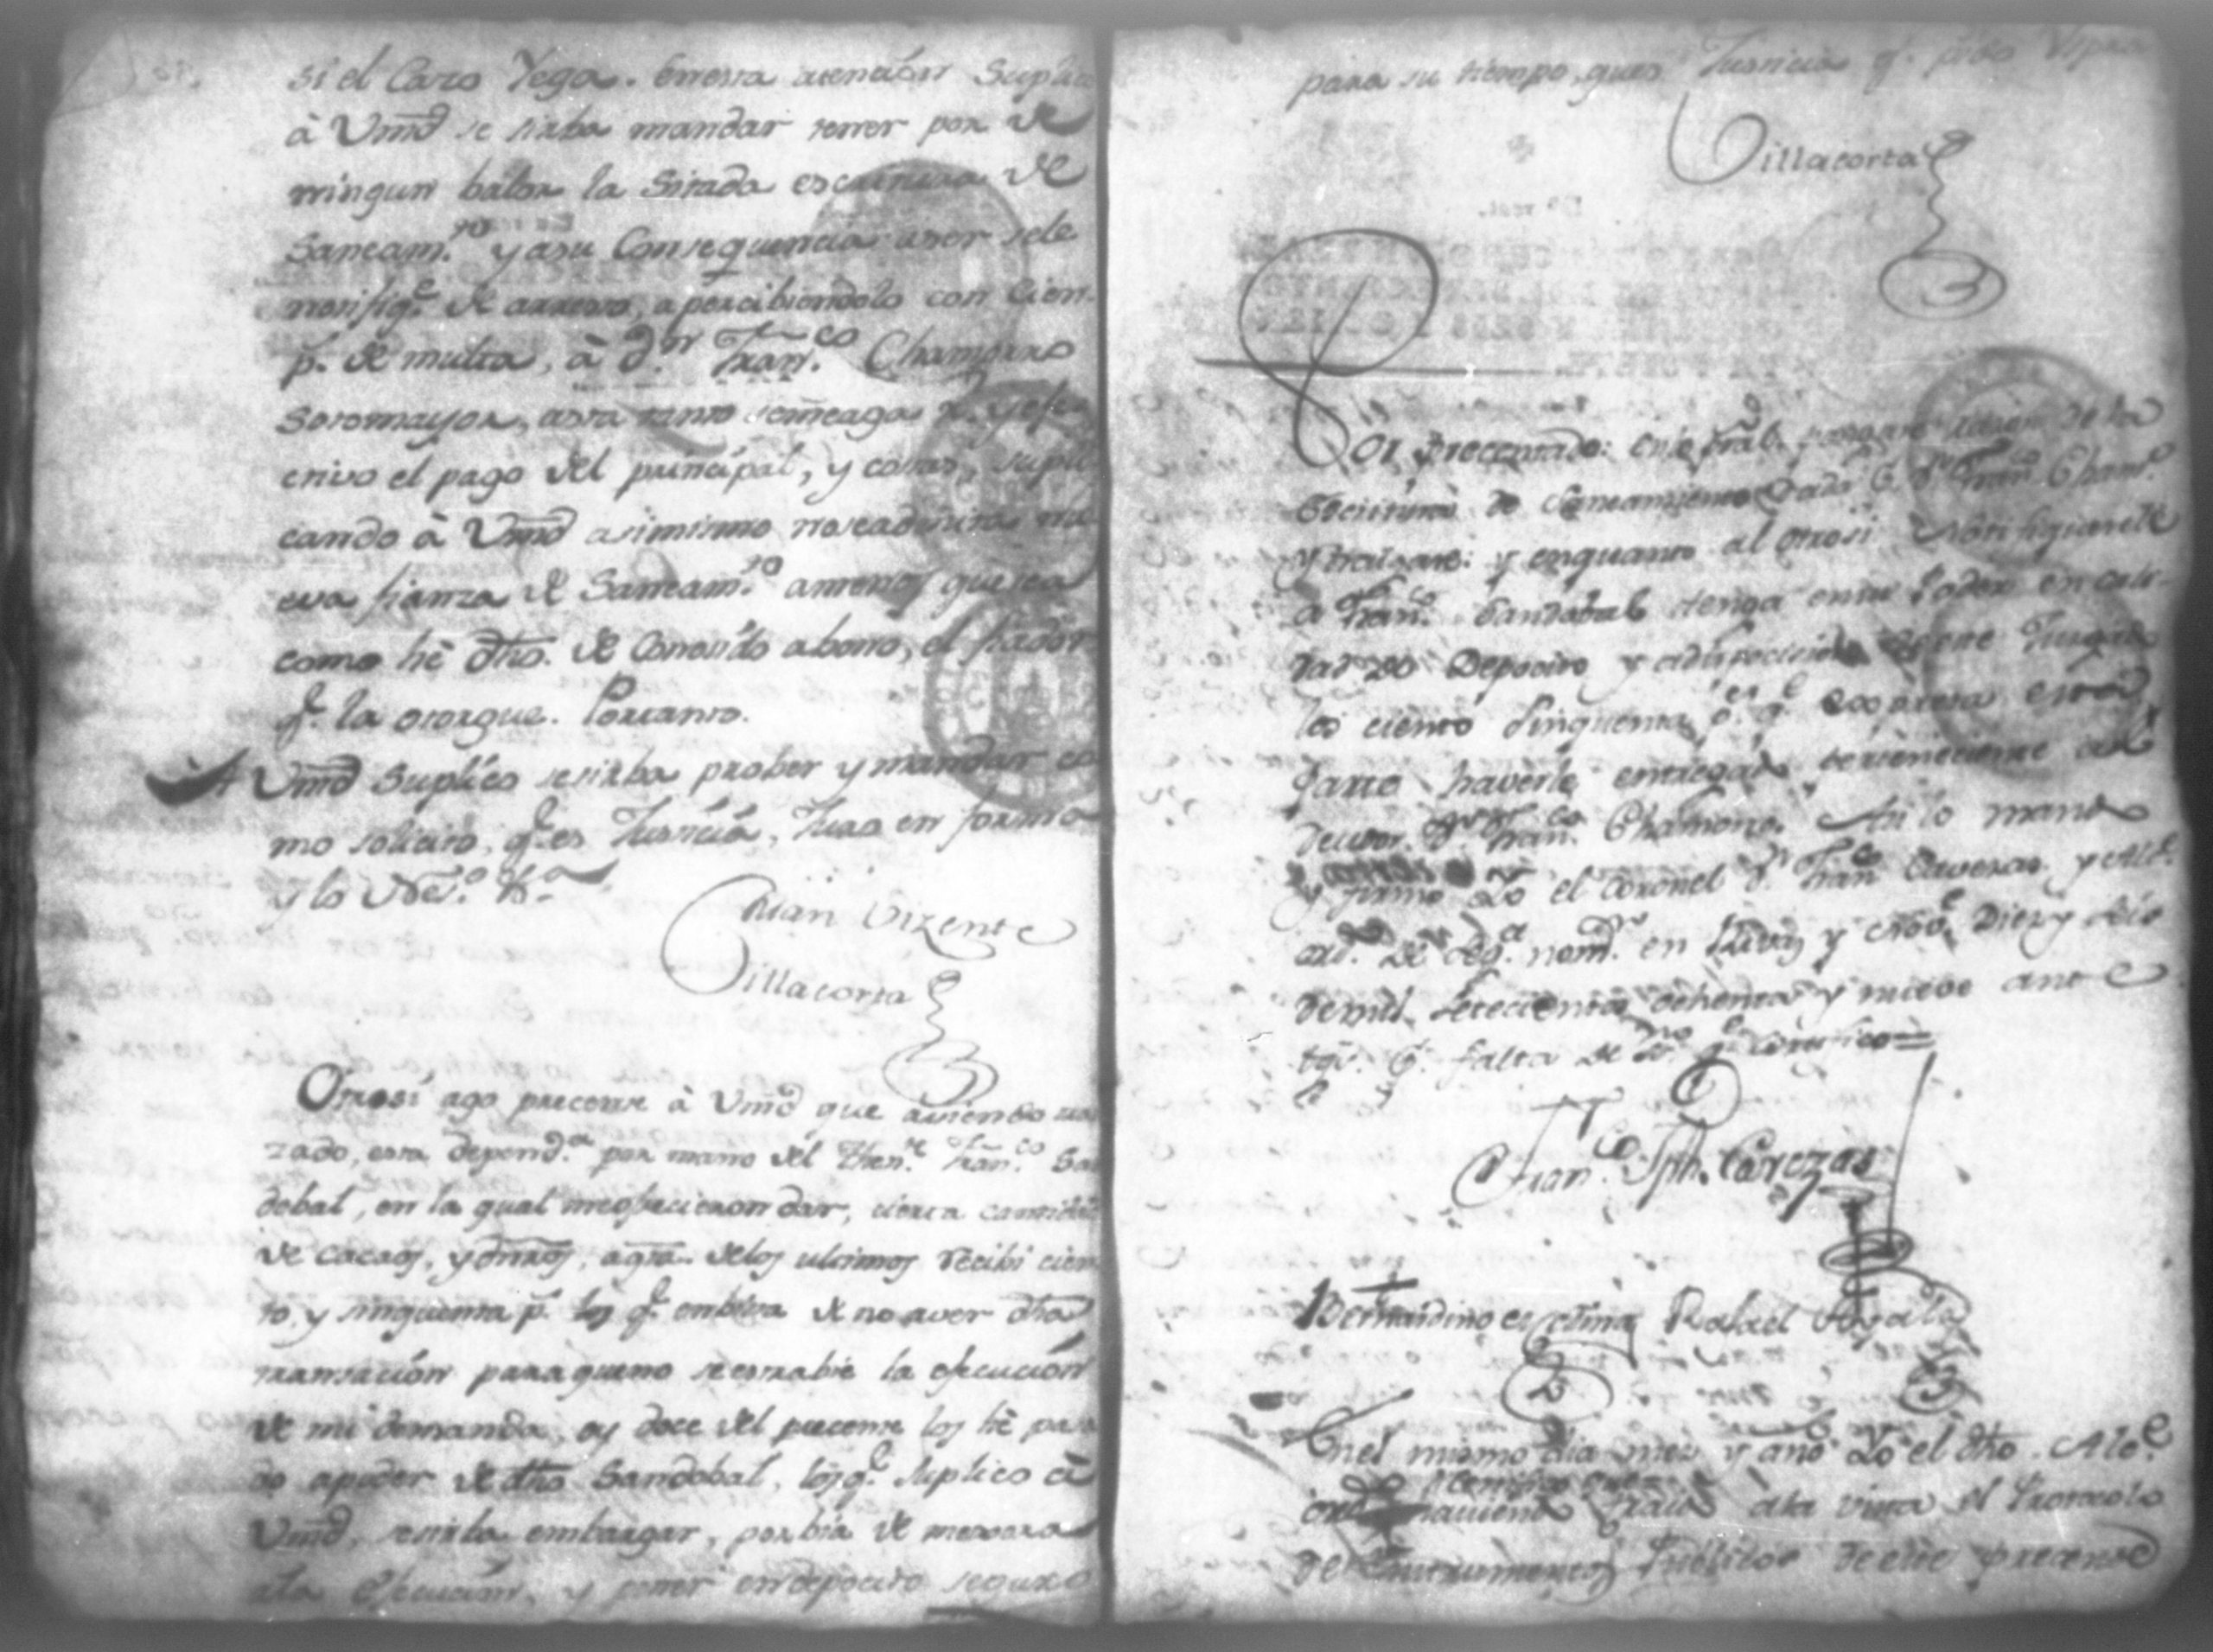 si el Caso llega. En esta atencion Suplico
à Vmd se sirba mandar tener por de
ningun balor la Sitada escritura de
Saneam.to y asu Consequencia aser sele
notifiq.e de arresto, apercibiendolo con Cien
p.s de multa, à d.n Fran.co Chamorro
Sotomayor, asta tanto
ectivo el pago del principal, y costas, supli
cando à Vmd asimismo no se admita nu
eva fianza de Saneam.to amenos que sea
como hê dho. de Conosido abono, el fiador
q.e la otorgue. Portanto.
A Vmd Suplico sesirba prober y mandar co
mo solicito, q.e es Justicia, Juro en forma
y lo Nes.o &.a
Juan Vizente
Villacorta
Otrosi ago precente à Vmd que aviendo
zado, esta depend.a por mano del Then.te Fran.co San
dobal, en la qual me ofrecieron dar, cierta cantidad
de cacaos, y dinros, a qta. delos ultimos recibi cien
to, y sinquenta p.s los q.e en birtud de no aver dha
transacion para queno se estrabie la ejecucion
de mi demanda, oy doce del precente los hê pa
do apoder de dho Sandobal, los q.e suplico à
Vmd, se sirba embargar, por bia de mejora
ala ejecucion, y poner en deposito seguro
para su tiempo, que es Justicia q.e pido Vt supra
Villacorta
Por Precentado: en lo pral.
Escritura de Saneamiento dada P. d.n Fran.co Cham.o
y traigase: y enquanto al otrosi Notifiquesele
a Fran.co Sandobal tenga en su Poder en cali
dad de Deposito y adisposicion de este Jusgado
los ciento sinquenta p.s q.e expresa esta
Parte haverle entregado perteneciente al
deudor D.n Fran.co Chamorro. Asi lo mando
y firmo Yo el Coronel D.n Fran.co Caveza y Alc.e
ord.o de Seg.a nom.n en Rivas y Nov.e Diez y seis
demil setecientos ochenta y nueve ante
tgos. P. falta de S.no q.e Certifico=
Fran.co Jph. Cavezas
Bernardino Rafael Ayala
Enel mismo dia mes y año Yo el dho. Alc.e
ord.o haviendo traido ala vista el Protocolo
de Instrumentos Publicos de este precente